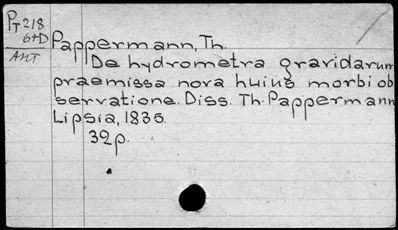 PT 218
6+D
ANT
Pappermann, Th.
De hydrometra gravidarum
praemissa nova huius morbi ob
servatione. Diss. Th. Pappermann
Lipsia, 1835.
32p.